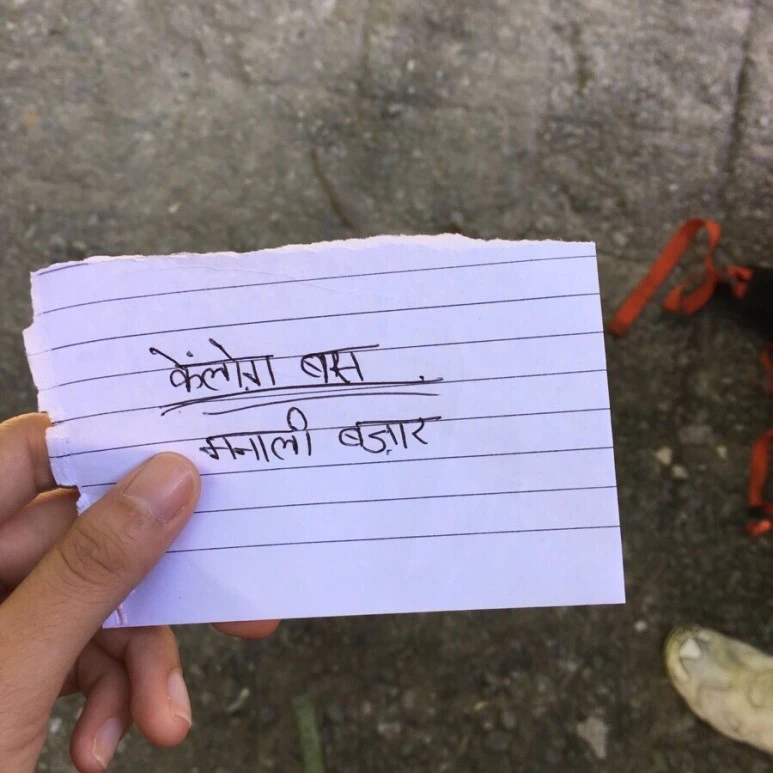 केंलोग़ बस
मनाली बज़ार